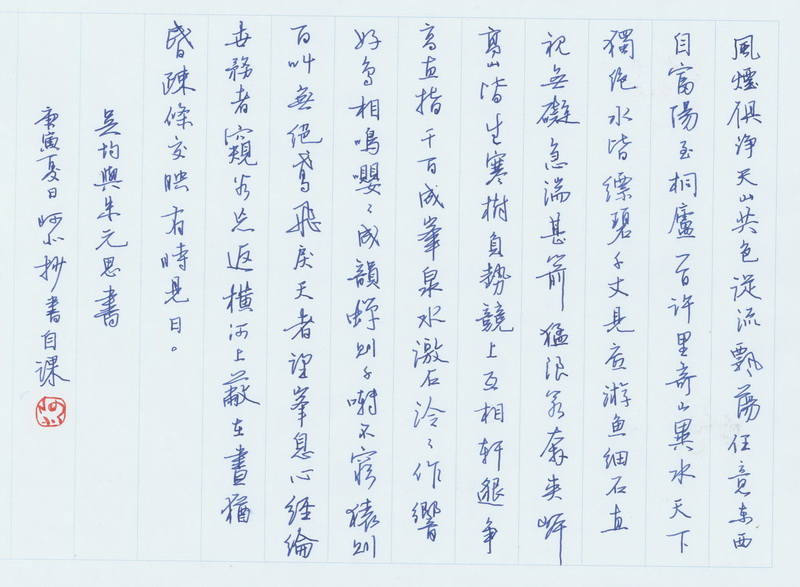 風煙俱淨天山共色從流飄蕩任意東西
自富陽至桐廬一百許里奇山異水天下
獨絕水皆縹碧千丈見底游魚細石直
視無礙急湍甚箭猛浪若奔夾岸
高山皆生寒樹負勢競上互相軒邈爭
高直指千百成峯泉水激石泠〻作響
好鳥相鳴嚶〻成韻蟬則千囀不窮猿則
百叫無絕鳶飛戾天者望峯息心經綸
世務者窺谷忘返橫柯上蔽在晝猶
昏疎條交映有時見日。
吳均與朱元思書
庚寅夏日抄書自課